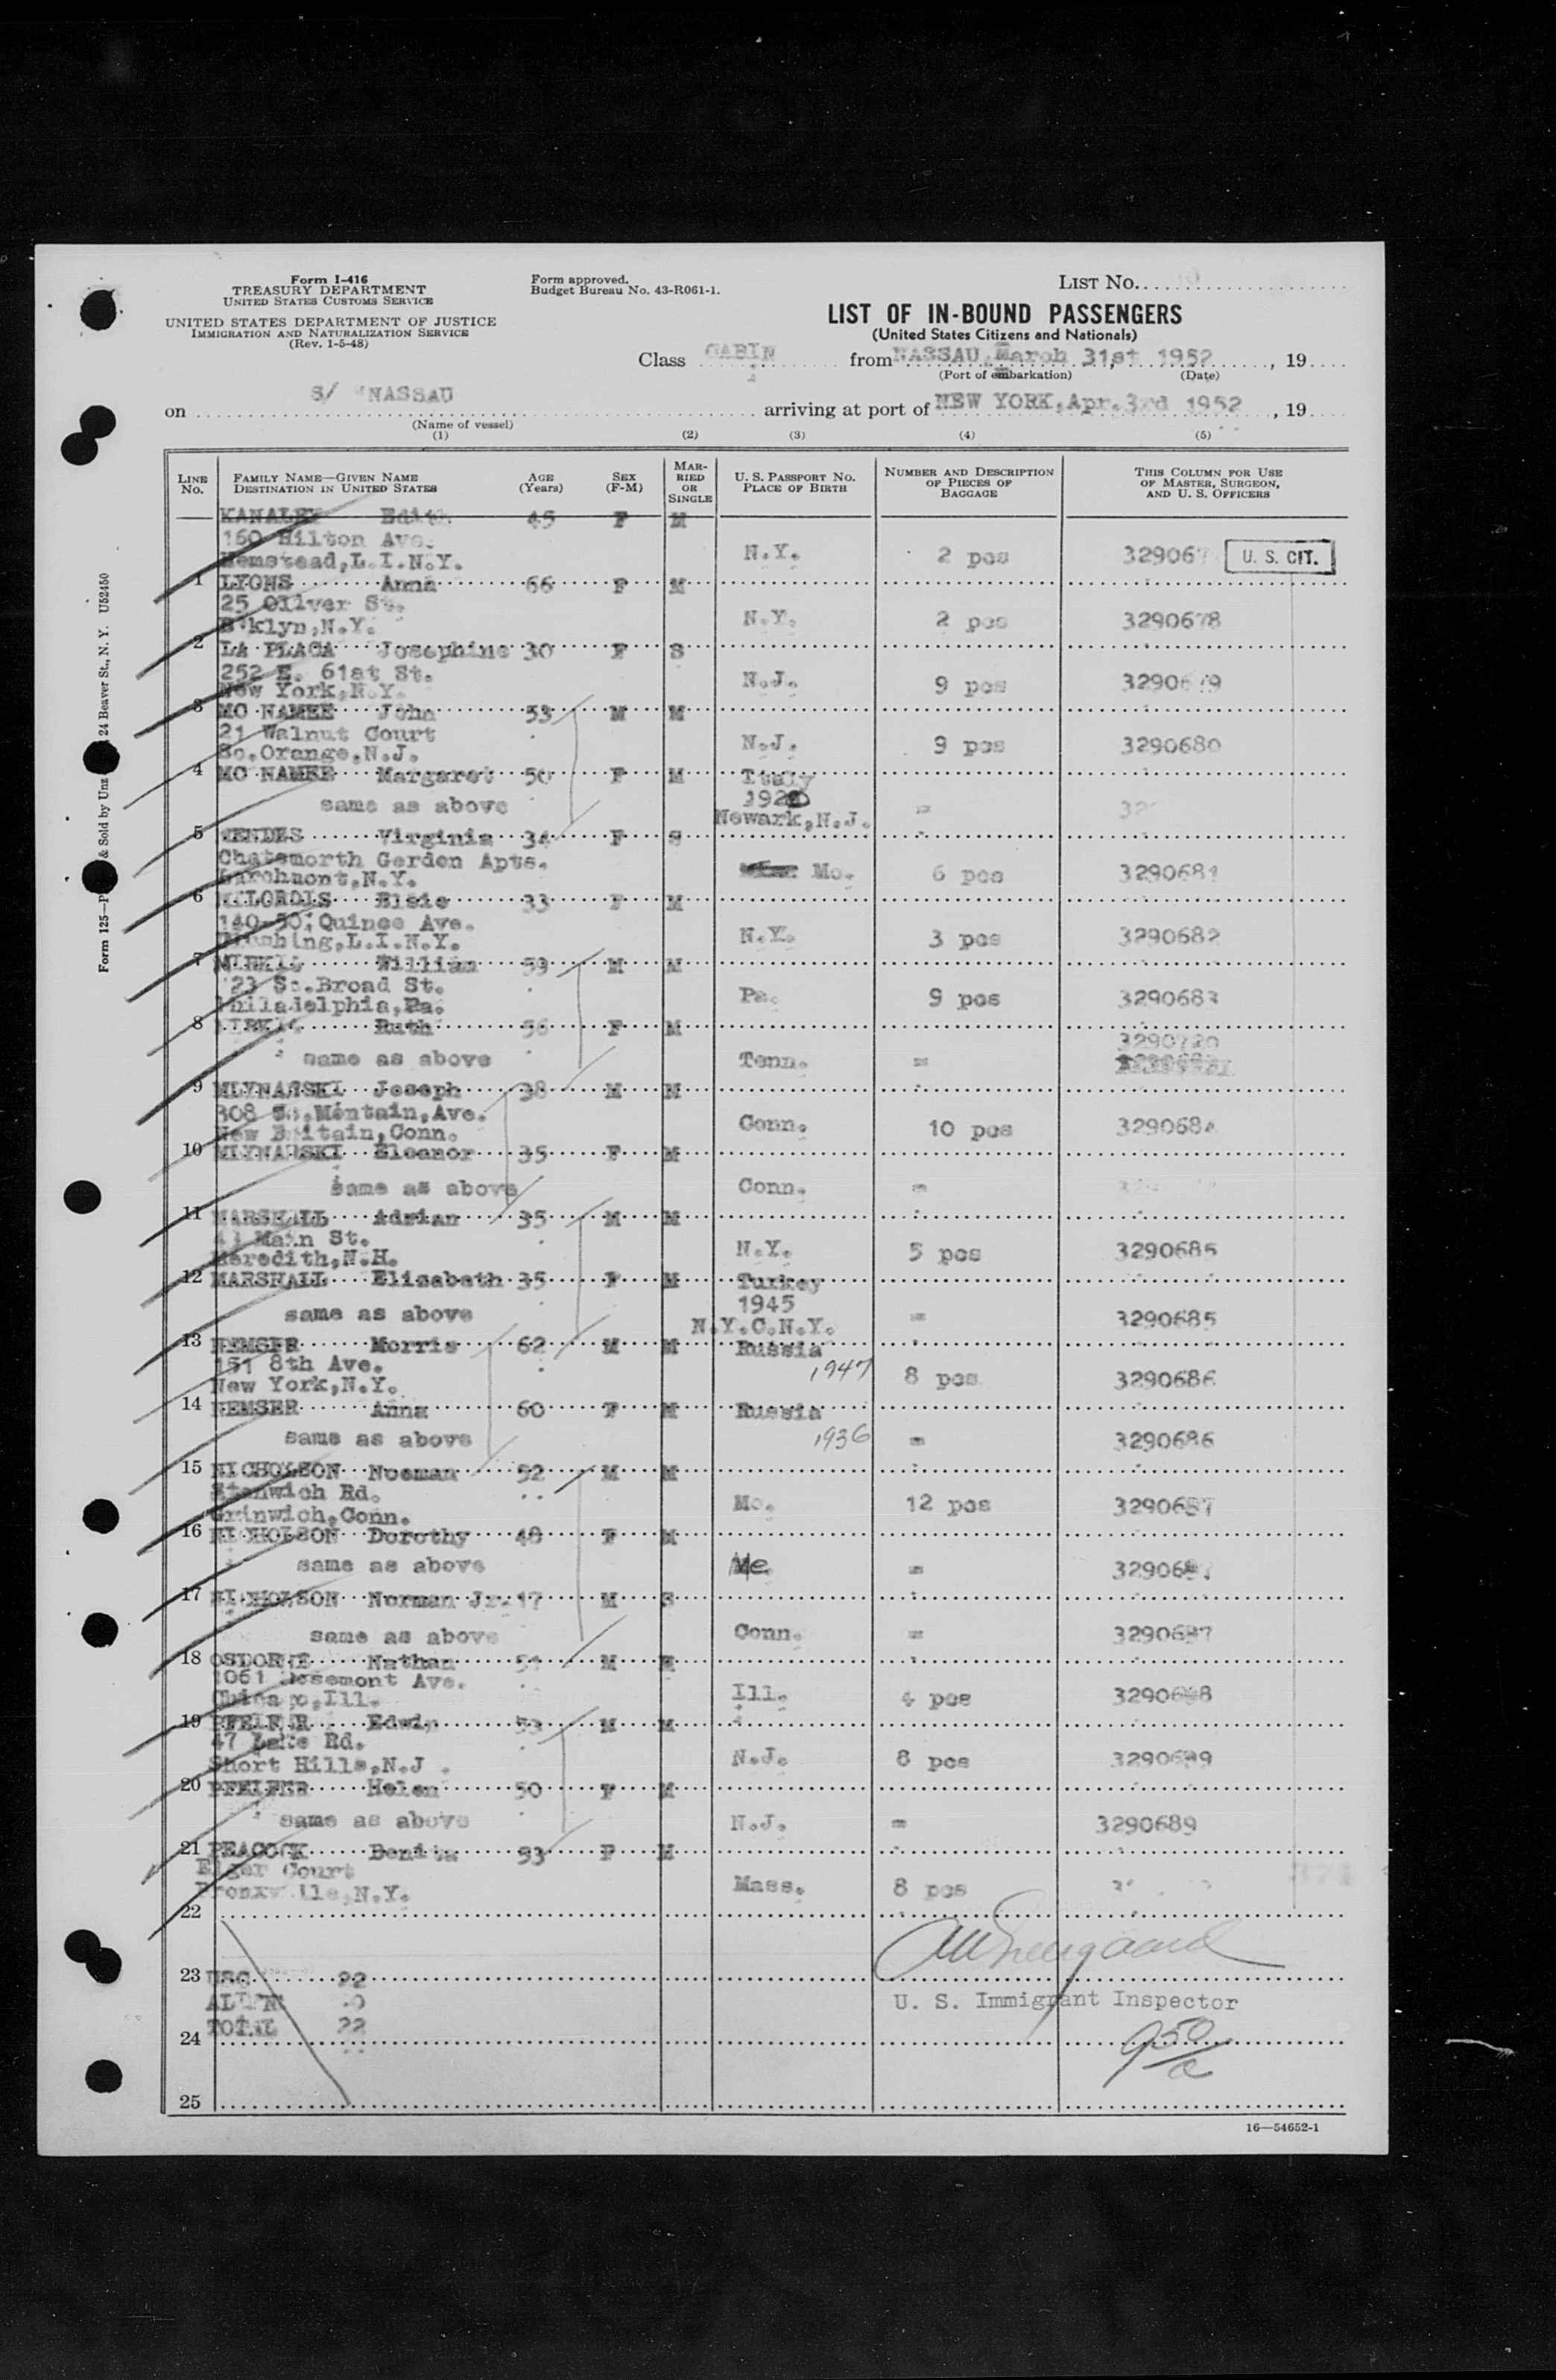 Form I-416
TREASURY DEPARTMENT
UNITED STATES CUSTOMS SERVICE
UNITED STATES DEPARTMENT OF JUSTICE
IMMIGRATION AND NATURALIZATION SERVICE
(Rev. 1-5-48)
Form approved.
Budget Bureau No. 43-R061-1.
LIST NO.
LIST OF IN-BOUND PASSENGERS
(United States Citizens and Nationals)
Class CABIN from NASSAU, March 31st 1952, 19
(Port of embarkation) (Date)
on S/ "NASSAU arriving at port of NEW YORK, Apr. 3rd 1952, 19
(Name of vessel)
(1) (2) (3) (4) (5)
LINE NO. FAMILY NAME—GIVEN NAME DESTINATION IN UNITED STATES AGE (Years) SEX (F-M) MARRIED OR SINGLE U. S. PASSPORT NO. PLACE OF BIRTH NUMBER AND DESCRIPTION OF PIECES OF BAGGAGE THIS COLUMN FOR USE OF MASTER, SURGEON, AND U. S. OFFICERS
KANALEY Edith 45 F M
160 Hilton Ave.
Hemstead, L.I.N.Y. N.Y. 2 pcs 329067 U. S. CIT.
1 LYONS Anna 66 F M
25 Oliver St.
B'klyn, N.Y. N.Y. 2 pcs 3290678
2 LA PLACA Josephine 30 F S
252 E. 61st St.
New York, N.Y. N.J. 9 pcs 3290679
3 MC NAMEE John 53 M M
21 Walnut Court
So. Orange, N.J. N.J. 9 pcs 3290680
4 MC NAMEE Margaret 50 F M Italy
same as above 192 = 32
Newark, N.J.
5 MENDES Virginia 34 F S
Chatsmorth Gerden Apts.
Larchmont, N.Y. Mo. 6 pcs 3290681
6 Elsie 33 F M
140-50; Quince Ave.
Flushing, L.I.N.Y. N.Y. 3 pcs 3290682
7 William 59 M M
123 So. Broad St.
Philadelphia, Pa. Pa. 9 pcs 3290683
8 Ruth 56 F M
3290720
same as above Tenn. =
9 MLYNARSKI Joseph 38 M M
308 So. Mentain, Ave.
New Britain, Conn. Conn. 10 pcs 3290684
10 MLYNARSKI Eleanor 35 F M
same as above Conn. =
11 MARSHALL Adrian 35 M M
41 Main St.
Meredith, N.H. N.Y. 5 pcs 3290685
12 MARSHALL Elizabeth 35 F M Turkey
same as above 1945 = 3290685
N.Y.C.N.Y.
13 NEMSER Morris 62 M M Russia
151 8th Ave. 1947
New York, N.Y. 8 pcs 3290686
14 NEMSER Anna 60 F M Russia
same as above 1936 = 3290686
15 NICHOLSON Noeman 52 M M
Stanwich Rd.
Grinwich, Conn. Mo. 12 pcs 3290687
16 NICHOLSON Dorothy 48 F M
same as above Me. = 3290687
17 NICHOLSON Norman Jr. 17 M S
same as above Conn. = 3290687
18 Nathan 51 M M
1061 Rosemont Ave.
Chicago, Ill. Ill. 4 pcs 3290688
19 PFEIFER Edwin 53 M M
47 Lake Rd.
Short Hills, N.J. N.J. 8 pcs 3290689
20 PFEIFER Helen 50 F M
same as above N.J. = 3290689
21 PEACOCK Benita 53 F M
Elger Court
Bronxville, N.Y. Mass. 8 pcs
22
23 USC 22
ALIENS 0 U. S. Immigrant Inspector
TOTAL 22
24
25
16—54652-1
Form 125— & Sold by Unz 24 Beaver St., N. Y. U52450